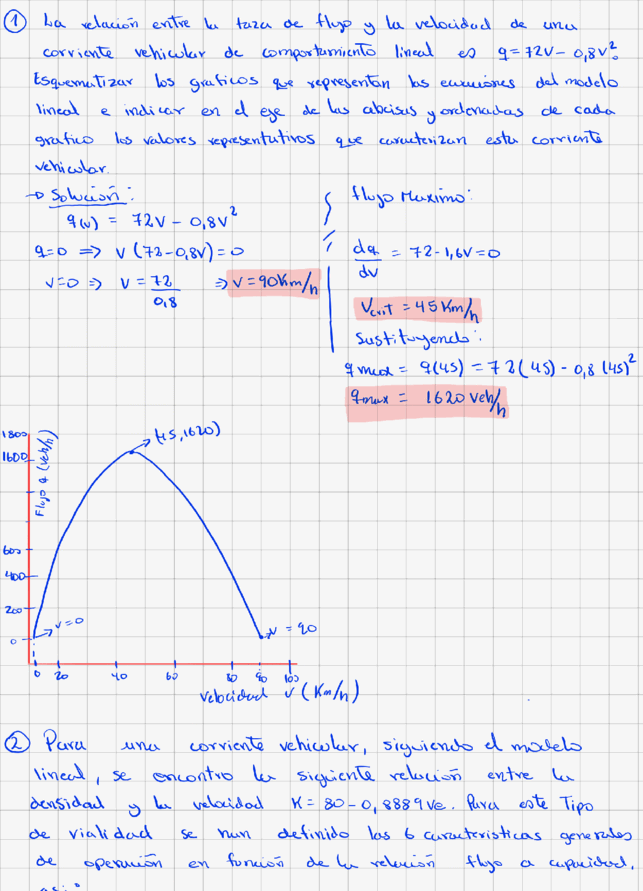 ① La relación entre la taza de flujo y la velocidad de una
corriente vehicular de comportamiento lineal es q=72V-0,8V².
Esquematizar los graficos que representan las ecuaciones del modelo
lineal e indicar en el eje de las abcisas y ordenadas de cada
grafico los valores representativos que caracterizan esta corriente
vehicular.
→ Solución:
q(v) = 72V-0,8V²
q=0 => V(72-0,8V)=0
V=0 => V = 72/0,8 => V=90Km/h
flujo Maximo:
dq/dv = 72-1,6V=0
Vcrit = 45Km/h
Sustituyendo:
q max = q(45) = 72(45) - 0,8(45)²
qmax = 1620 veh/h
Flujo q (veh/h)
1800
1600
600
400
200
0
(45,1620)
V=0
V = 90
0 20 40 60 80 90 100
Velocidad V (Km/h)
② Para una corriente vehicular, siguiendo el modelo
lineal, se encontro la siguiente relación entre la
densidad y la velocidad K= 80-0,8889Ve. Para este Tipo
de vialidad se han definido las 6 caracteristicas generales
de operación en función de la relación flujo a capacidad,